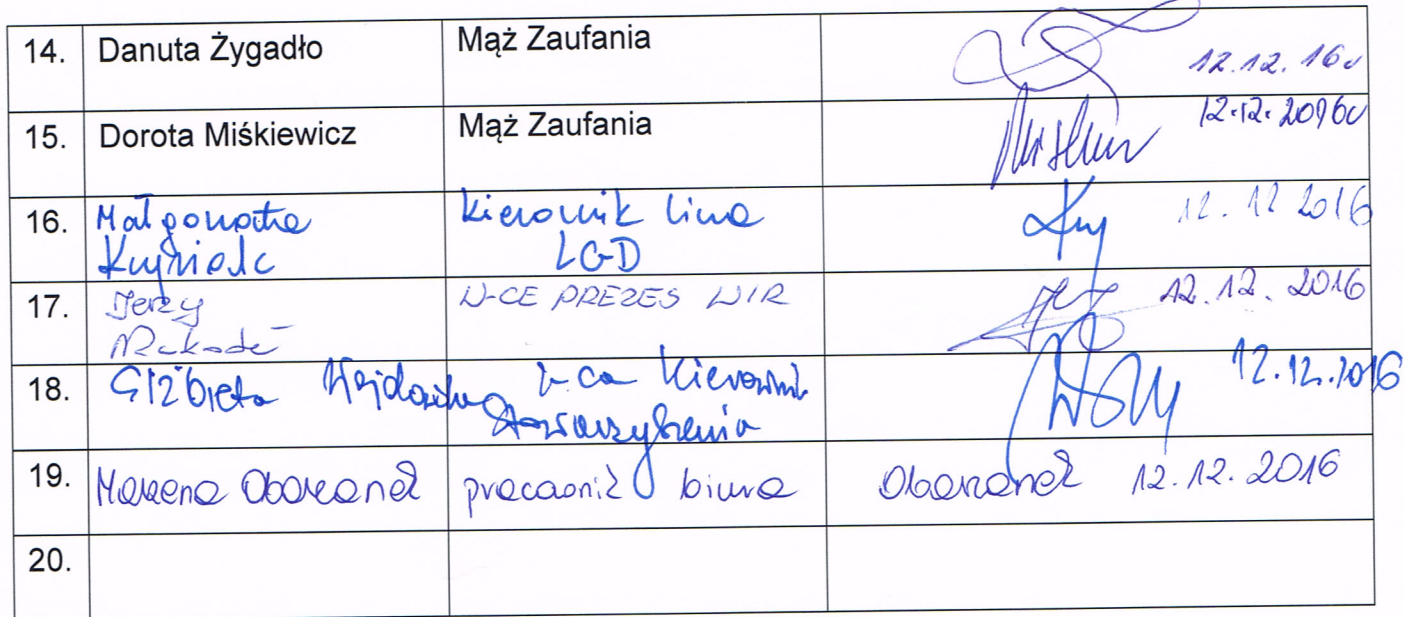 14. Danuta Żygadło Mąż Zaufania 12.12.16r
15. Dorota Miśkiewicz Mąż Zaufania 12.12.2016r
16. Małgorzata Kierownik biura 12.12 2016
LGD
17. Jerzy W-CE PREZES WIR 12.12.2016
18. Elżbieta V-ca Kierownik 12.12.2016
Stowarzyszenia
19. Marzena Obarzanek pracownik biura Obarzanek 12.12.2016
20.